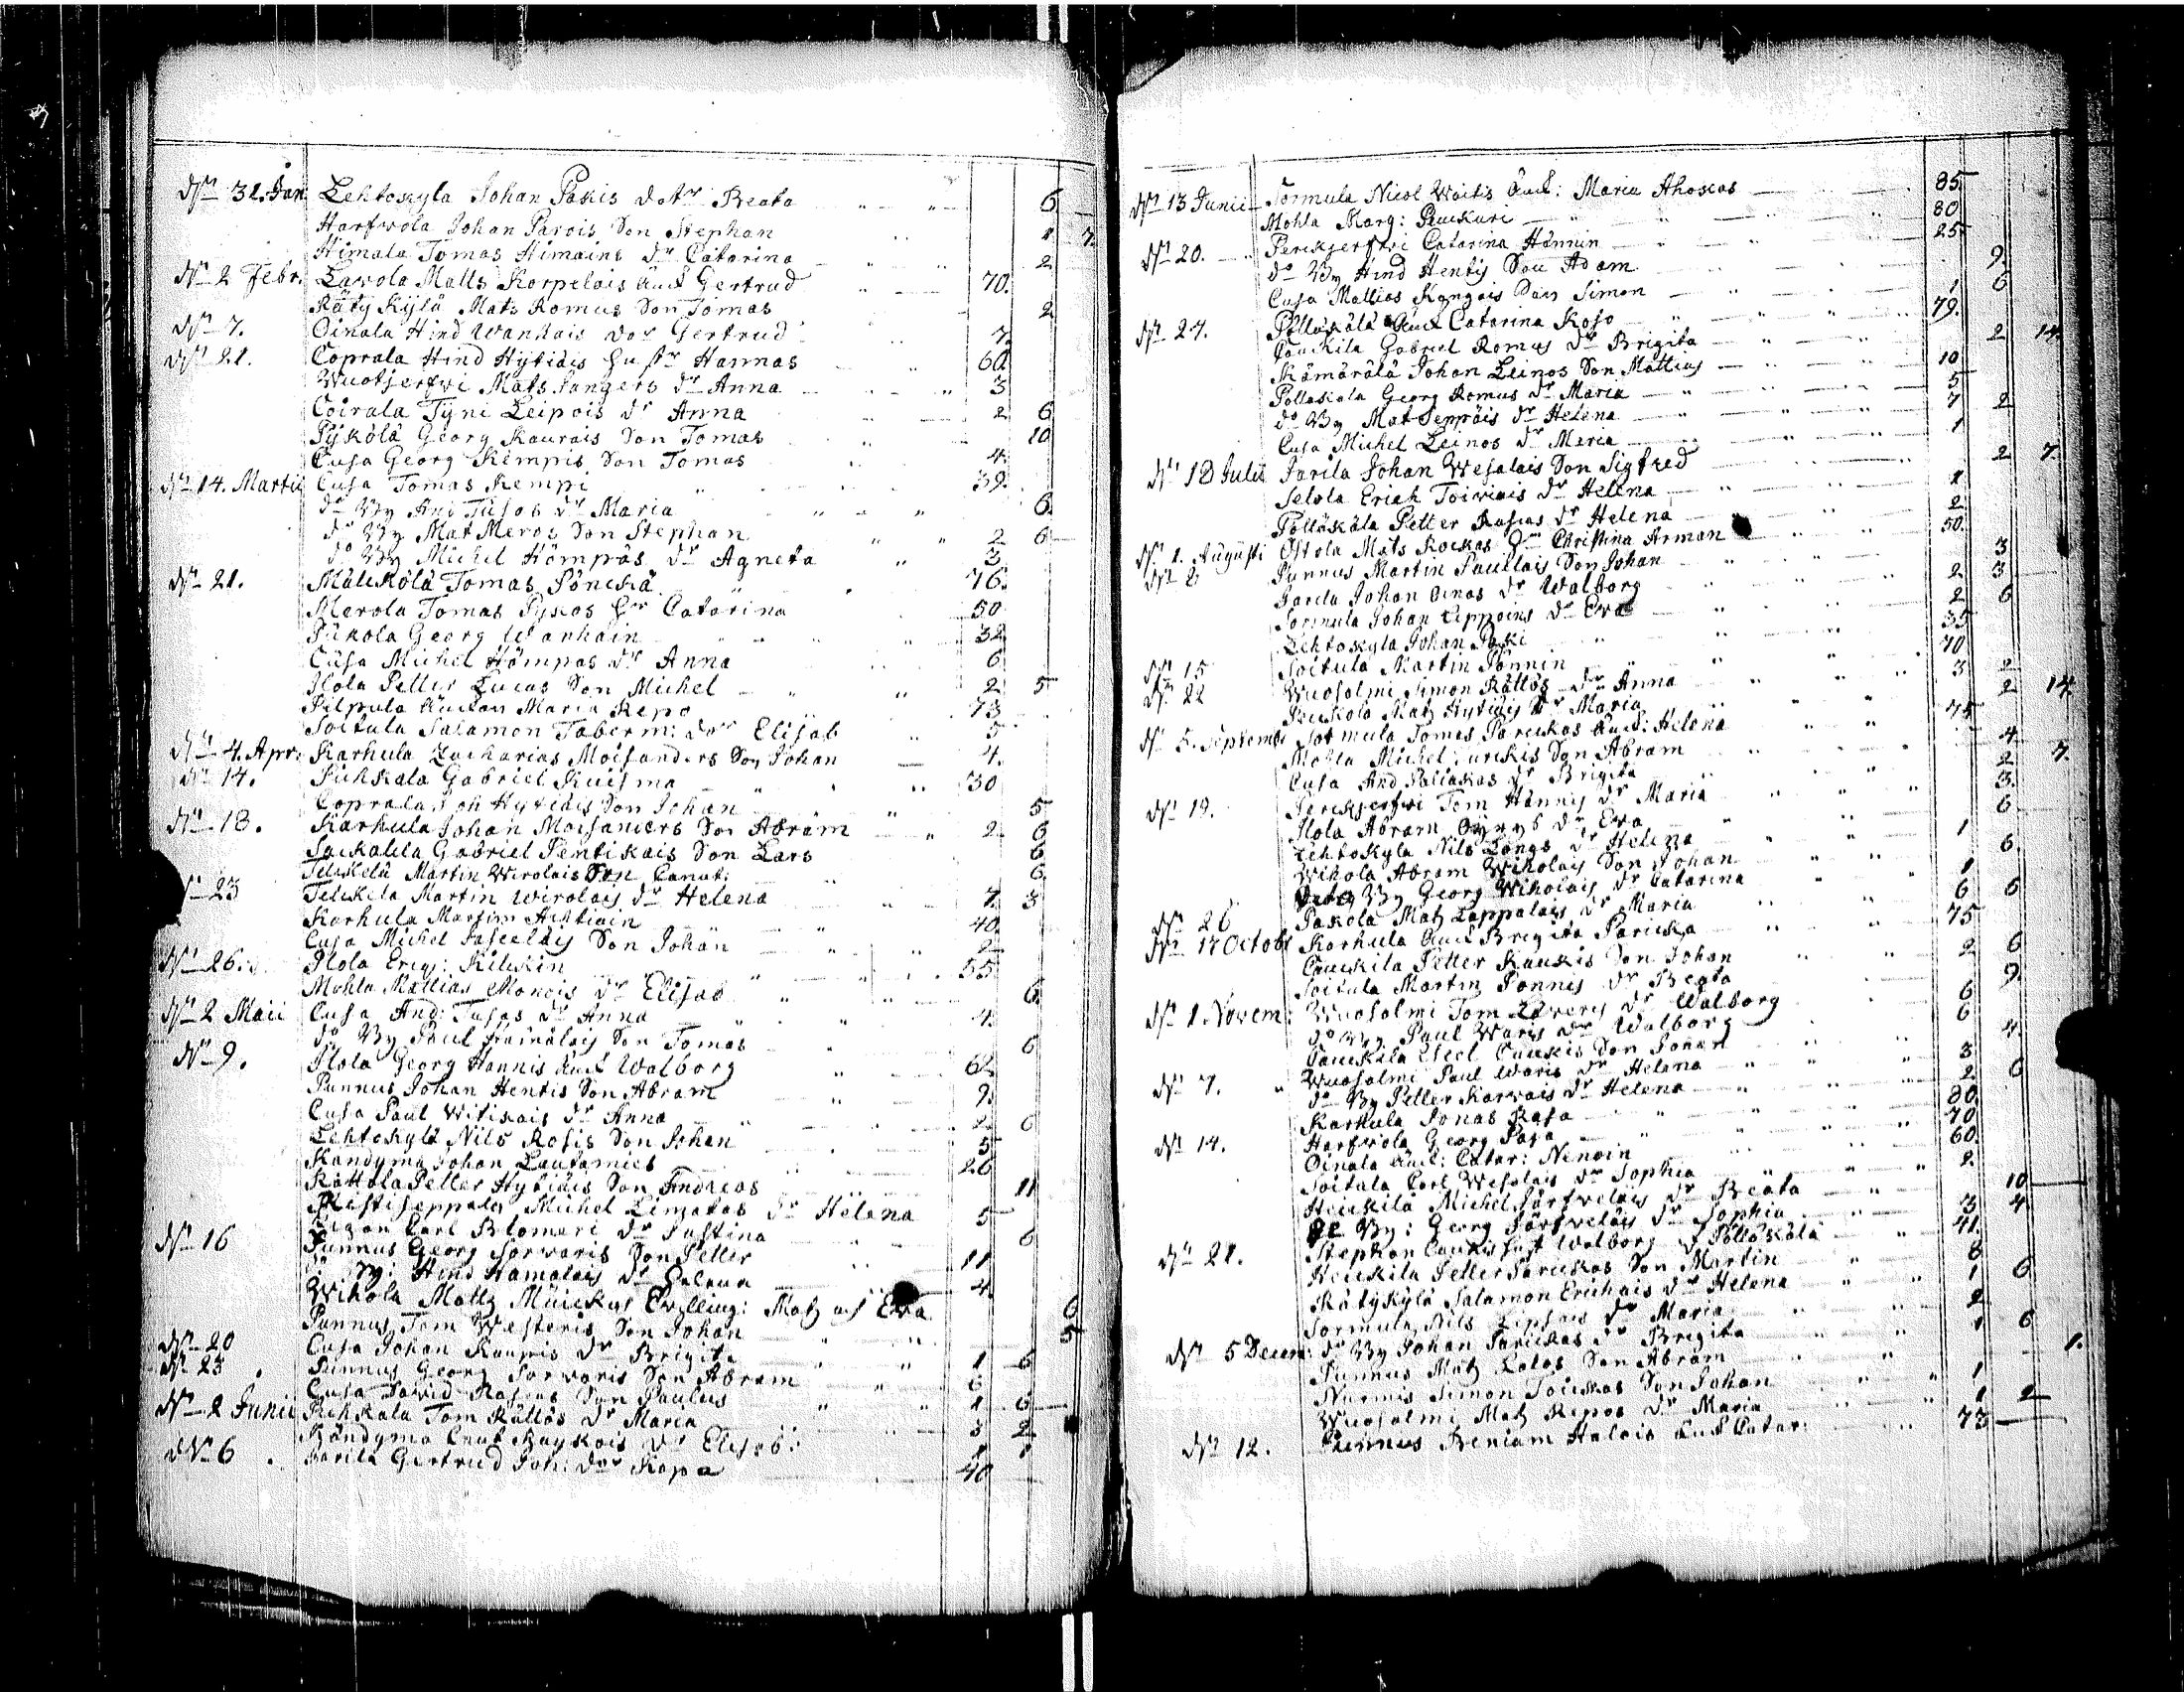 Dn 31. Jan Lehtokyla Johan Pakis dotr Beata 6
Harfwola Johan Parois Son Stephan 1 7.
Himala Tomas Himains dr Catarina 2
Dn 2 Febr. Lavola Matts Korpelais Änck Gertrud 70.
Räty Kylä Mats Romus Son Tomas 2
Dn 7. Oinala Hind Wanhais dor Gertrud 7.
Dn 21. Coprala Hind Hytiäis hustr Hannas 60.
Wuotjerfwi Mats Jangers dr Anna 3
Coirala Tyni Leipois dr Anna 2 6
Pykölä Georg Kaurais Son Tomas 10
Cusa Georg Kempis Son Tomas 4.
Dn 14. Martii Cusa Tomas Kempi 39.
do By And Tusos dr Maria 6.
do By Mat Meros Son Stephan 2 6
do By Michel Hömpäs dr Agneta 3
Dn 21. Mälckölä Tomas Pönckä 76.
Merola Tomas Pykos hr Catarina 50
Pukola Georg Wanhain 32
Cusa Michel Hömpas dr Anna 6
Ilola Petter Lucas Son Michel 2 5
Pilpula Änckan Maria Repo 73
Soitula Salamon Taberm: dor Elisab 5
Dn 4. Apr. Karhula Zacharias Moisanders Son Johan 4.
Dn 14. Pihkala Gabriel Kuisma 30
Coprala Joh Hytiäis Son Johan 5
Dn 18. Karhula Johan Moisanders Son Abram 2 6
Gabriel Pentikais Son Lars 6
Martin Wirolais Son Canut: 6
Dn 23 Martin Wirolais dr Helena 7 3
Karhula Martin 40.
Cusa Michel Son Johan 2
Dn 26. Ilola Erig: Kilckin 55
Mohla Mattias Moncis dr Elisab 6.
Dn 2 Maii Cusa And: Tusos dr Anna 4.
do By Paul Hämäläis Son Tomas 6
Dn 9. Ilola Georg Hannis Änck Walborg 62
Punnus Johan Hentis Son Abram 9.
Cusa Paul Witikais dr Anna 2 6
Lehtokylä Nils Rosis Son Johan 5
Kandyma Johan Lautamies 26
Kattola Petter Hytiäis Son Andreas 11
Michel Limatas dr Helena 5
Carl Blomeri dr Justina 6
Dn 16 Punnus Georg Sorvaris Son Petter 11
do By: Hind Hämäläis dr Helena 4
Wikola Matts Mäickys Twilling: Mats och Eva 6
Punnus Tom Westeris Son Johan 5
Dn 20 Cusa Johan Kaupis dr Brigita 1 6
Dn 23 Punnus Georg Sorvaris Son Abram 6
Cusa David Son Paulus 1 6
Dn 2 Junii Pihkala Tom Rättös dr Maria 3 2
Kändyma Cnut dr Elisab: 1 1
Dn 6. Parila Gertrud Joh: dor Kopa 40

Dn 13 Junii Sormula Nicol Waitis Änck: Maria Ahoskas 85
Mohla Marg: Pauckuri 80
Perckjerfwi Catarina Hännin 25
Dn 20. do By Hind Hentis Son Adam 9.
Cusa Mattias Kangais Son Simon 1 6
Pölläkälä Änck Catarina Koso 79.
Dn 27. Cauckila Gabriel Romus dr Brigita 2 14.
Kämärälä Johan Leinos Son Mattius 10
Pollakala Georg Romus dr Maria 5
do By Mat Seppäis dr Helena 7 2
Cusa Michel Leinos dr Maria 1
Dn 18 Julii Parila Johan Wesalais Son Sigfred 2 7.
Selola Erich Toiviais dr Helena 1
Pölläkälä Petter dr Helena 2
Dn 1. Augusti Ostola Mats Kockos hr Christina Arman 50.
Dn 8 Punnus Martin Paullais Son Johan 3
Parila Johan Ainos dr Walborg 2 3
Sormula Johan Lippoins dr Eva 2 6
Lehtokyla Johan Packi 35
Dn 15 Soitula Martin Pönnin 70
Dn 22 Wuosalmi Simon Rättös dr Anna 3 2
Mats Hytiäis dr Maria 2 14.
Dn 5. Septembr Sormula Tomas Parckas Änck: Helena 75
Mohla Michel Son Abram 4
Cusa And dr Brigita 2 7.
Dn 19. Perckjerfwi Tom Hännis dr Maria 3.
Ilola Abram dr Eva 6
Lehtokyla Nils Langs dr Helena 1
Wikola Abram Wikolais Son Johan 6.
dito By Georg Wikolais dr Catarina 1
Dn 26 Pakola Mats Lappalais dr Maria 6 6
Dn 17 Octobr Karhula Änck Brigita Parcka 75
Cauckila Petter Kauckis Son Johan 2 6
Soitula Martin Ponnis dr Beata 9.
Dn 1 Novem: Wuosalmi Tom Laverys dr Walborg 6
do By Paul Waris dr Walborg 6
Cauckila Cauckis Son Johan 4
Dn 7. Wuosalmi Paul Waris dr Helena 3
do By Petter Karvais dr Helena 2 6
Karhula Jonas Rasa 80.
Dn 14. Harfwola Georg Pasa 70
Oinala Änck: Catar: Nenoin 60.
Soitula Carl Wesalais dr Sophia 2.
Heickilä Michel Järfweläis dr Beata 10
do By: Georg Järfweläis dr Sophia 3 4
Dn 21. Stephan Cauckis hust Walborg i Pölläkälä 41.
Heickila Petter Parckas Son Martin 6
Rätykylä Salamon Erichais dr Helena 1 6
Sormula Nils Lipsais dr Maria 2
Dn 5 Decem: do By Johan Parckas dr Brigita 1 6
Punnus Mats Latos Son Abram 1.
Nurmis Simon Toickas Son Johan 1
Wuosalmi Mats Repos dr Maria 1 2
Dn 12. Punnus Beniam Halois Änck Catar: 73